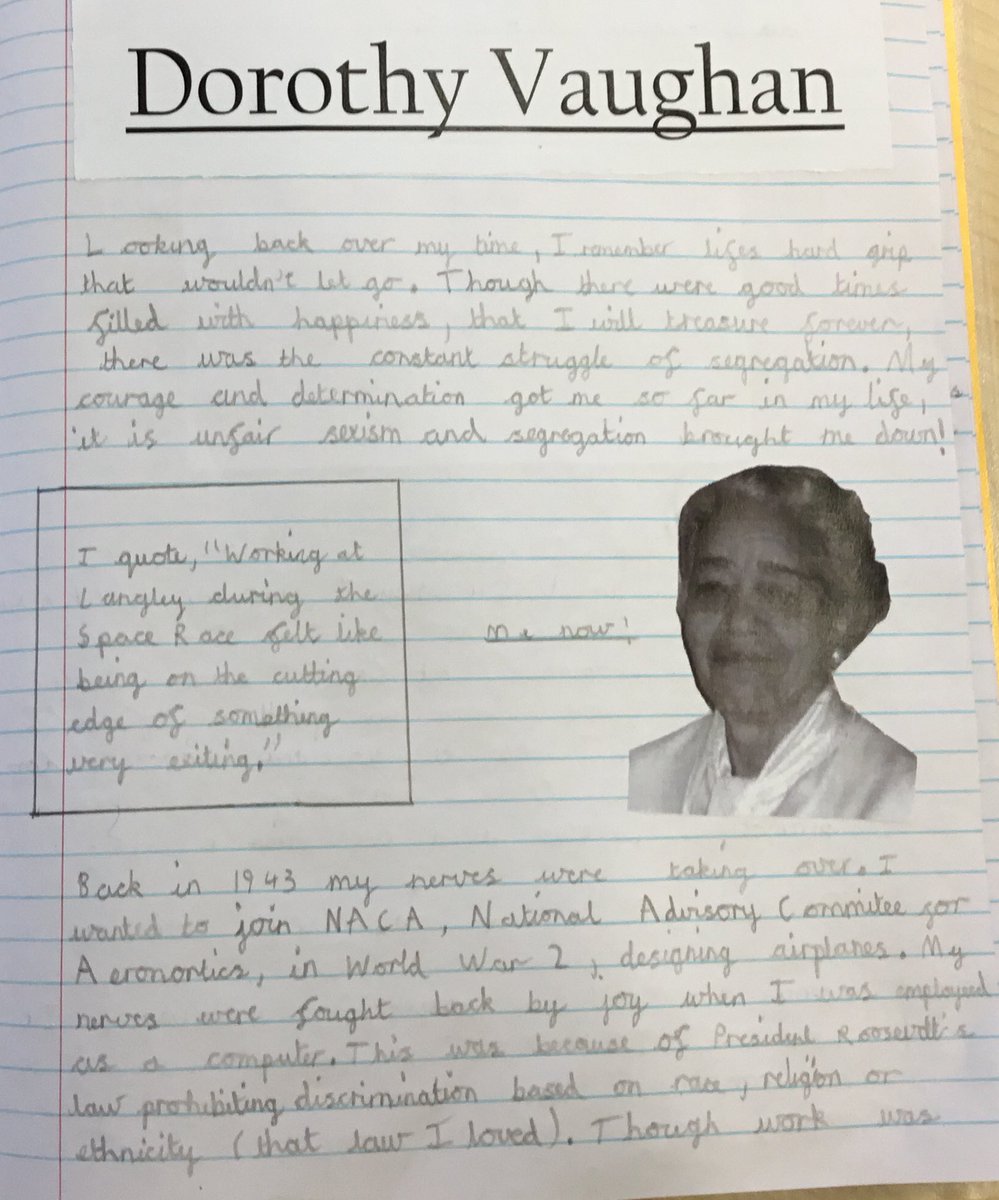 Dorothy Vaughan
Looking back over my time, I remember lifes hard grip
that wouldn't let go. Though there were good times
filled with happiness, that I will treasure forever,
there was the constant struggle of segregation. My
courage and determination got me so far in my life,
it is unfair sexism and segregation brought me down!
I quote, "Working at
Langley during the
Space Race felt like
being on the cutting
edge of something
very exiting."
me now!
Back in 1943 my nerves were taking over. I
wanted to join NACA, National Advisory Commitee for
Aeronontics, in World War 2, designing airplanes. My
nerves were fought back by joy when I was employed
as a computer. This was because of President Roosevelt's
law prohibiting discrimination based on race, religion or
ethnicity (that law I loved). Though work was